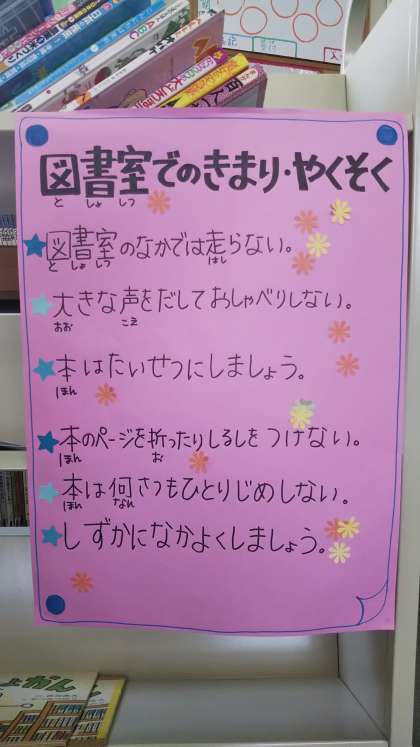 図書室でのきまり・やくそく
と しょ しつ
図書室のなかでは走らない。
と しょ しつ はし
大きな声をだしておしゃべりしない。
おお こえ
本はたいせつにしましょう。
ほん
本のページを折ったりしるしをつけない。
ほん お
本は何さつもひとりじめしない。
ほん なん
しずかになかよくしましょう。